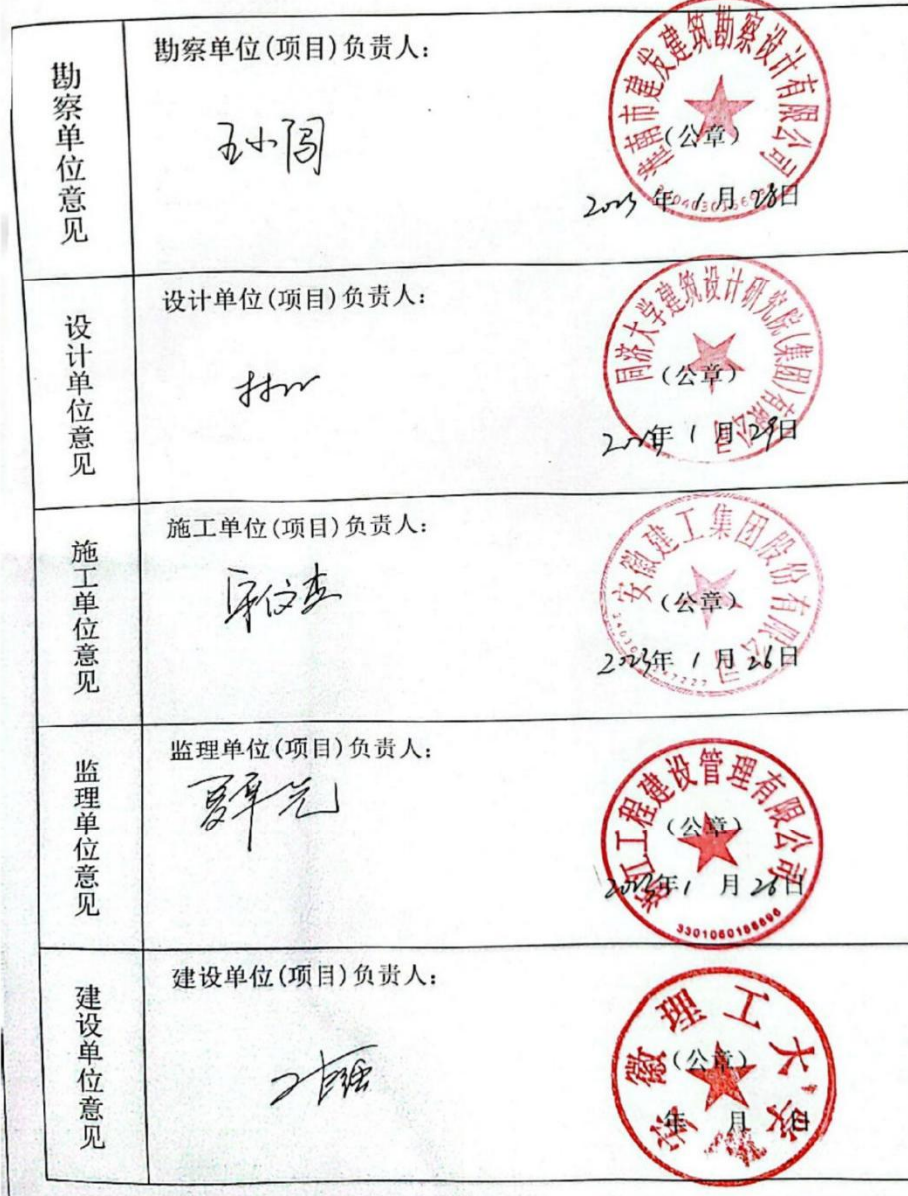 勘察单位意见
勘察单位(项目)负责人：
王小闯
淮南市建发建筑勘察设计有限公司
(公章)
2023年1月28日
设计单位意见
设计单位(项目)负责人：
同济大学建筑设计研究院(集团)有限公司
(公章)
年1月29日
施工单位意见
施工单位(项目)负责人：
安徽建工集团股份有限公司
(公章)
2023年1月26日
监理单位意见
监理单位(项目)负责人：
浙江工程建设管理有限公司
(公章)
2023年1月26日
建设单位意见
建设单位(项目)负责人：
安徽理工大学
(公章)
年 月 日